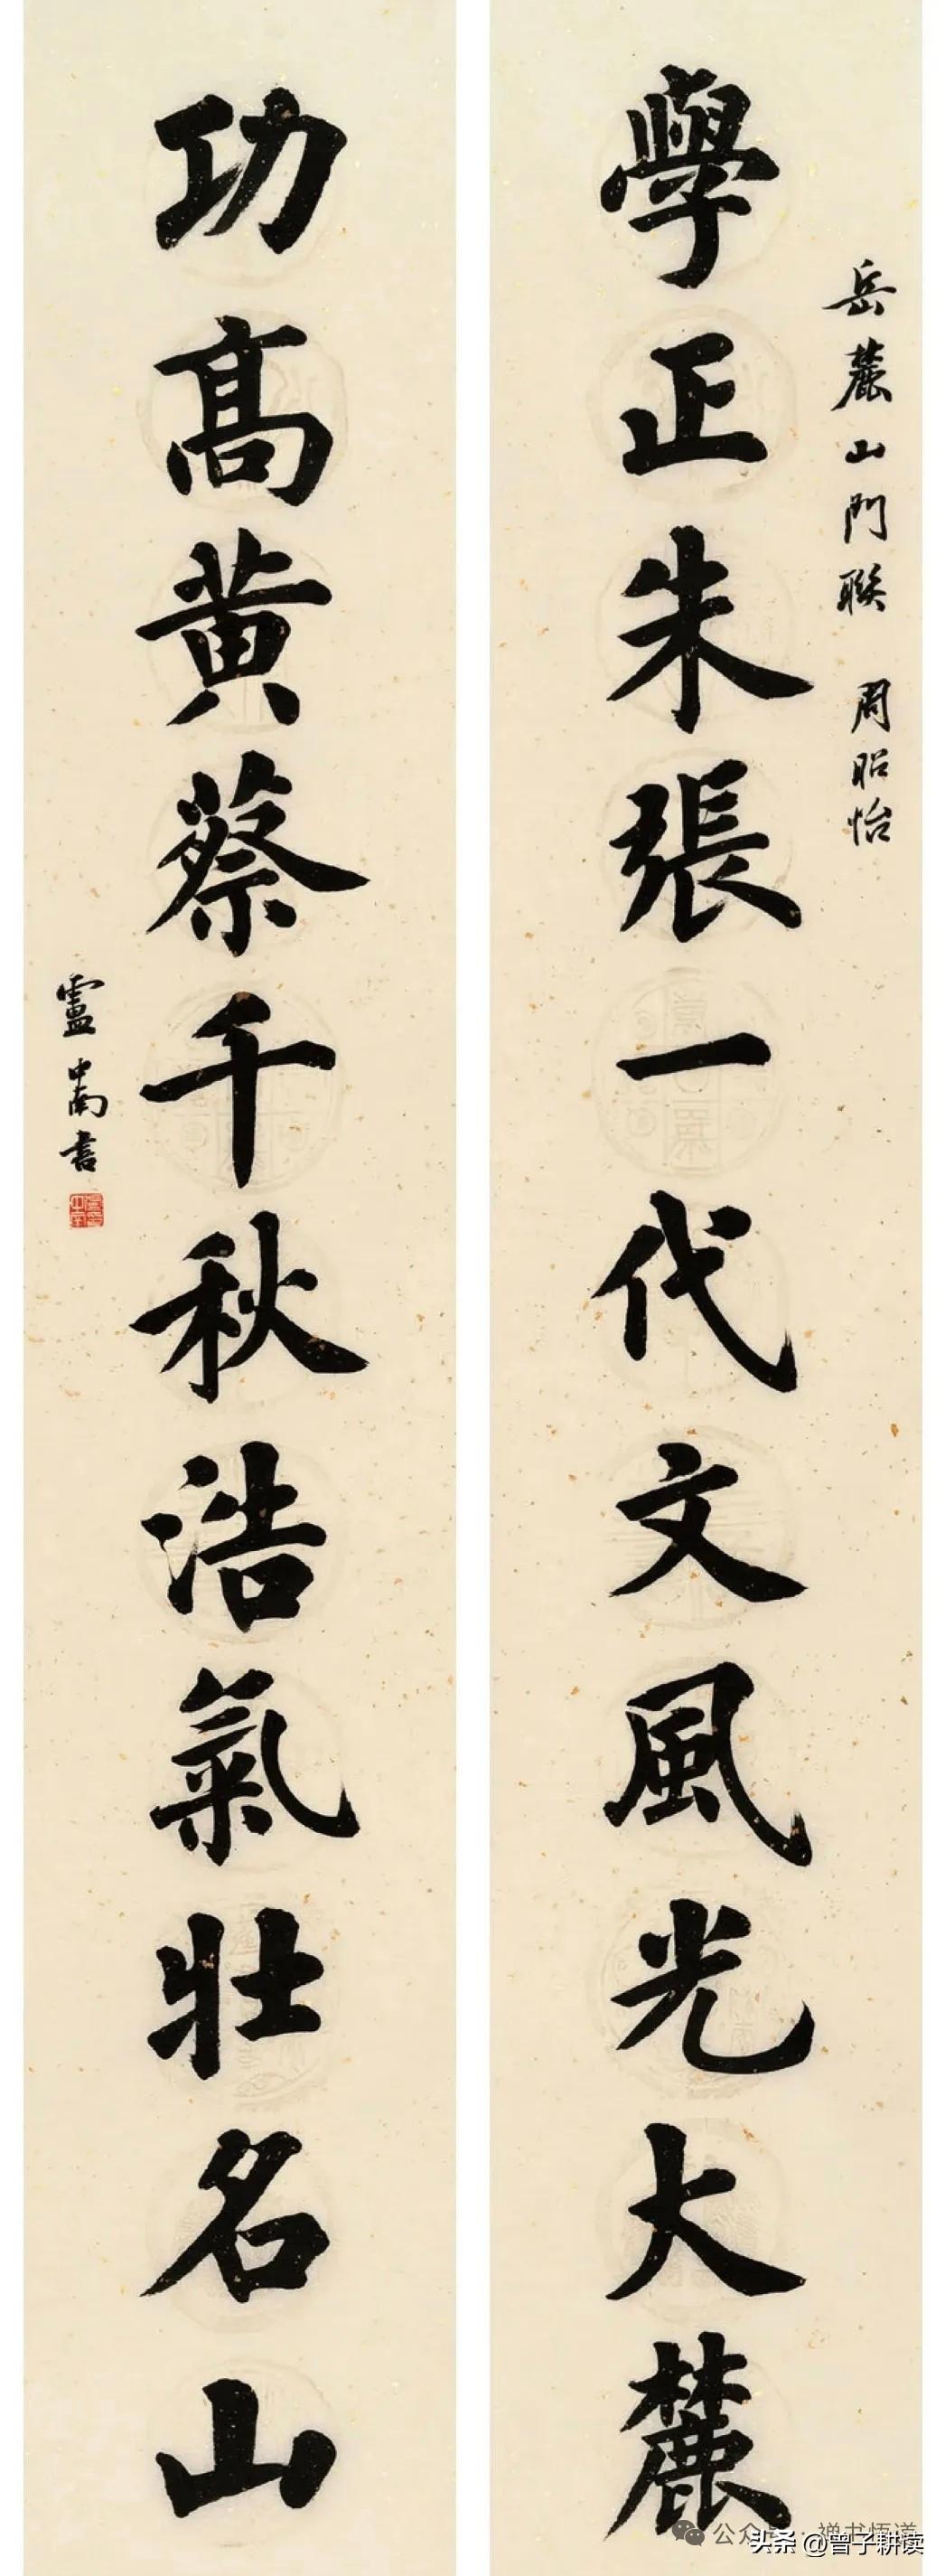 岳麓山門聯 周昭怡
學正朱張一代文風光大麓
功高黄蔡千秋浩氣壯名山
盧中南書
公众号·禅书悟道
头条@曾子耕读